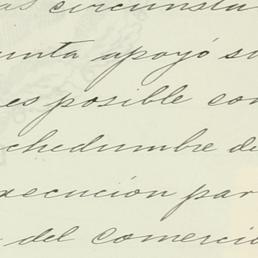 as circunsta
unta apoyó so
es posible con
chedumbre de
xecución par
del comercio